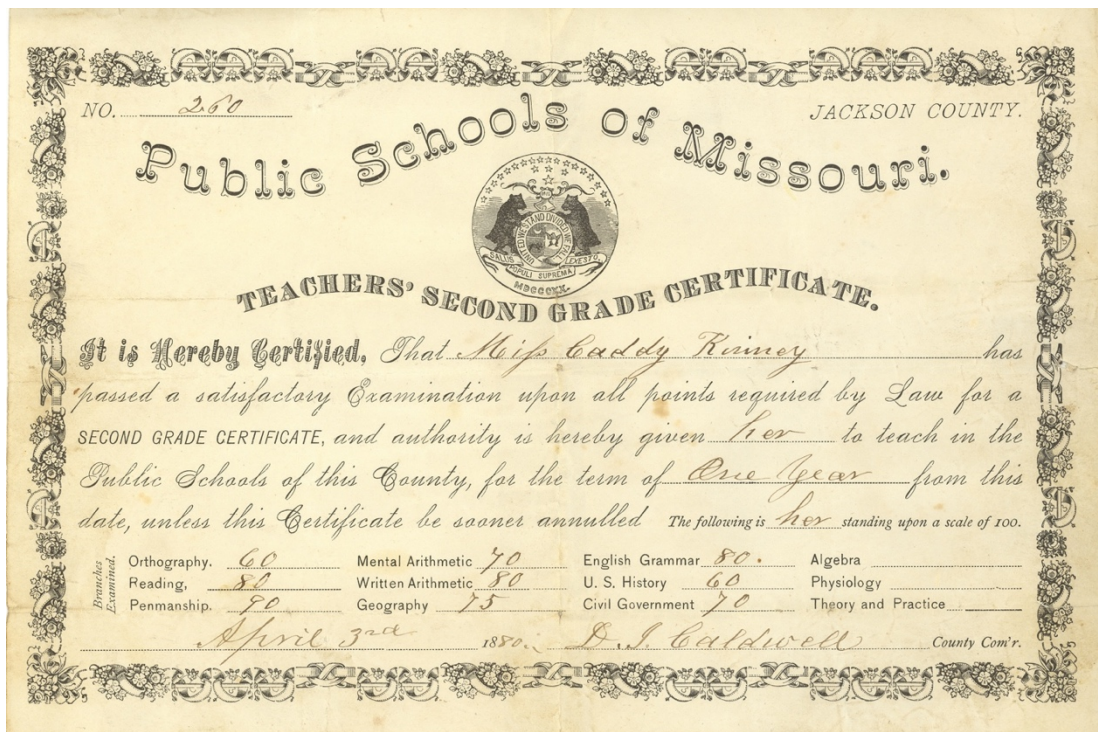 NO. 260
JACKSON COUNTY.
Public Schools of Missouri.
UNITED WE STAND DIVIDED WE FALL
SALUS POPULI SUPREMA LEX ESTO
MDCCCXX.
TEACHERS' SECOND GRADE CERTIFICATE.
It is Hereby Certified, That Miss Caddy Kinney has
passed a satisfactory Examination upon all points required by Law for a
SECOND GRADE CERTIFICATE, and authority is hereby given her to teach in the
Public Schools of this County, for the term of One Year from this
date, unless this Certificate be sooner annulled The following is her standing upon a scale of 100.
Branches Examined.
Orthography. 60 Mental Arithmetic 70 English Grammar 80. Algebra
Reading, 80 Written Arithmetic 80 U. S. History 60 Physiology
Penmanship. 90 Geography 75 Civil Government 70 Theory and Practice
April 3rd 1880. D. J. Caldwell County Com'r.